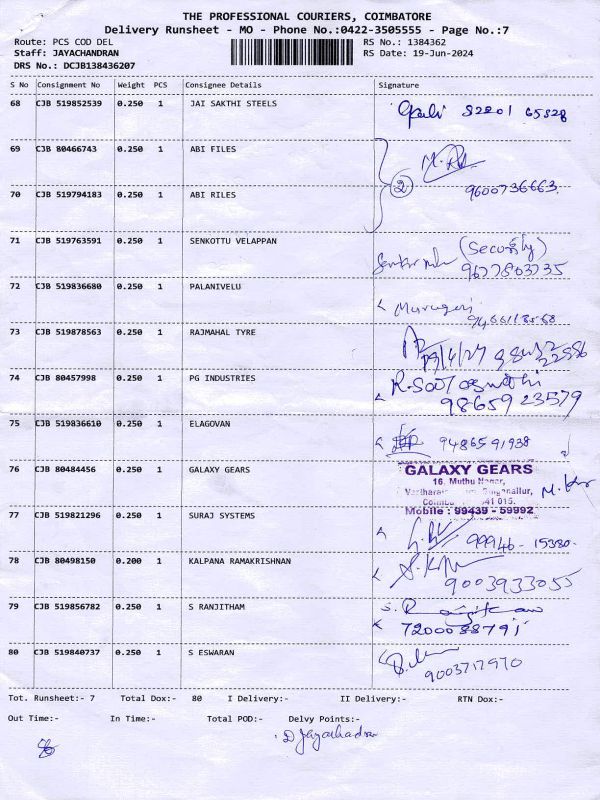 THE PROFESSIONAL COURIERS, COIMBATORE
Delivery Runsheet - MO - Phone No.:0422-3505555 - Page No.:7
Route: PCS COD DEL RS No.: 1384362
Staff: JAYACHANDRAN RS Date: 19-Jun-2024
DRS No.: DCJB138436207
S No Consignment No Weight PCS Consignee Details Signature
68 CJB 519852539 0.250 1 JAI SAKTHI STEELS 82201 65328
69 CJB 80466743 0.250 1 ABI FILES
70 CJB 519794183 0.250 1 ABI RILES 2 9600736663
71 CJB 519763591 0.250 1 SENKOTTU VELAPPAN (Security) 9677803735
72 CJB 519836680 0.250 1 PALANIVELU Murugan
73 CJB 519878563 0.250 1 RAJMAHAL TYRE
74 CJB 80457998 0.250 1 PG INDUSTRIES 98659 23579
75 CJB 519836610 0.250 1 ELAGOVAN 9486591938
76 CJB 80484456 0.250 1 GALAXY GEARS GALAXY GEARS
16, Muthu Nagar,
Mobile : 99439 - 59992
77 CJB 519821296 0.250 1 SURAJ SYSTEMS 99946 - 15380-
78 CJB 80498150 0.200 1 KALPANA RAMAKRISHNAN 9003933055
79 CJB 519856782 0.250 1 S RANJITHAM 7200088791
80 CJB 519840737 0.250 1 S ESWARAN 9003717970
Tot. Runsheet:- 7 Total Dox:- 80 I Delivery:- II Delivery:- RTN Dox:-
Out Time:- In Time:- Total POD:- Delvy Points:-
D Jayachadran